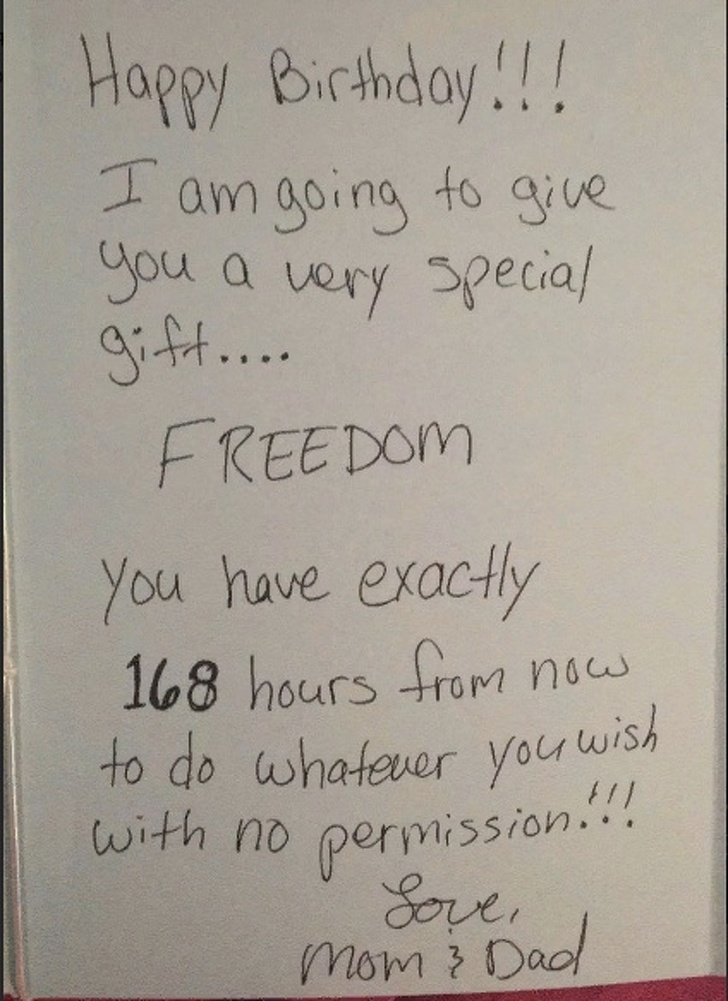 Happy Birthday!!!
I am going to give
you a very special
gift....
FREEDOM
you have exactly
168 hours from now
to do whatever you wish
with no permission.!!!
Love,
Mom & Dad